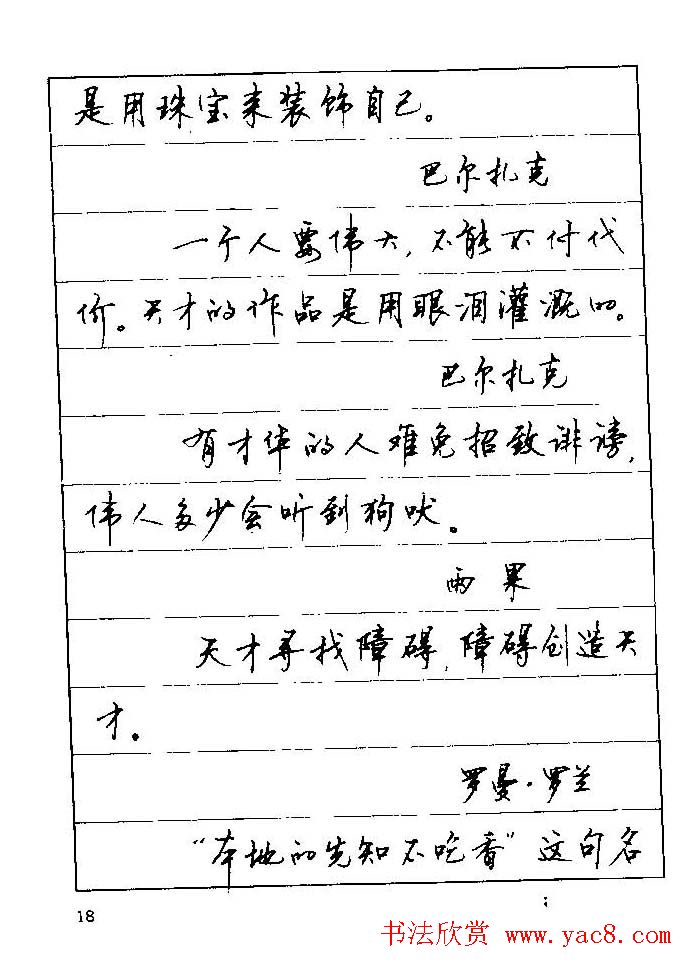 是用珠宝来装饰自己。
巴尔扎克
一个人要伟大,不能不付代
价。天才的作品是用眼泪灌溉的。
巴尔扎克
有才华的人难免招致诽谤,
伟人多少会听到狗吠。
雨果
天才寻找障碍,障碍创造天
才。
罗曼·罗兰
“本地的先知不吃香”这句名
18
书法欣赏 www.yac8.com